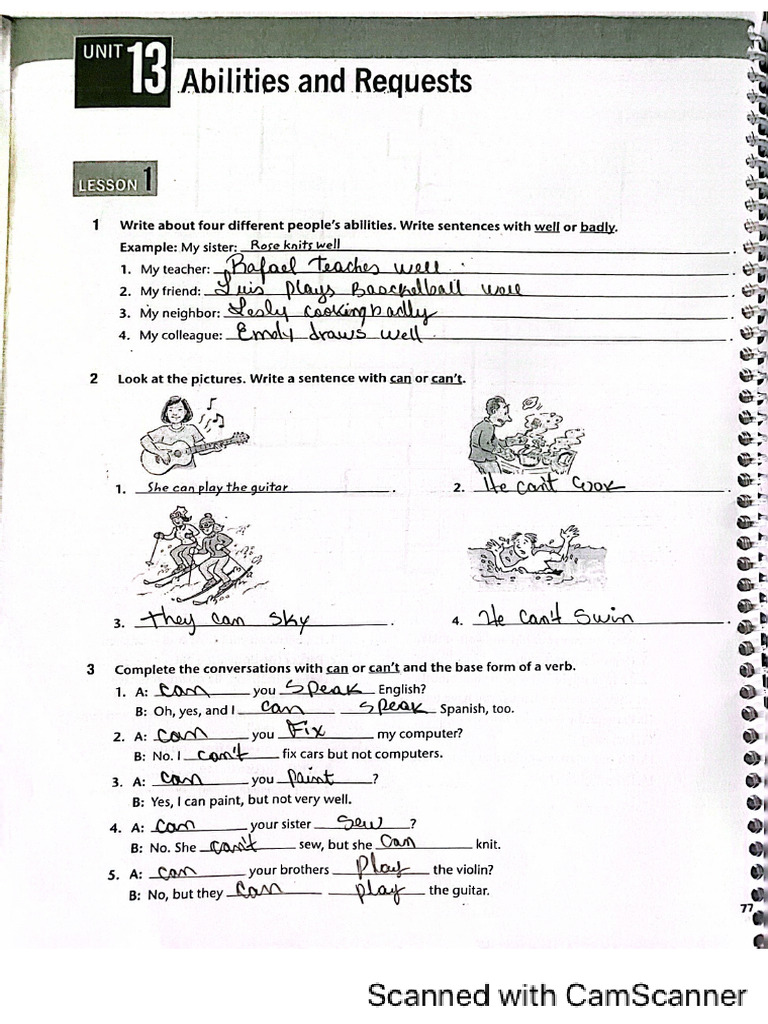 UNIT 13 Abilities and Requests
LESSON 1
1 Write about four different people's abilities. Write sentences with well or badly.
Example: My sister: Rose knits well.
1. My teacher: Rafael teaches well.
2. My friend: Luis plays Bascketball well.
3. My neighbor: Lesly cooking badly.
4. My colleague: Emely draws well.
2 Look at the pictures. Write a sentence with can or can't.
1. She can play the guitar. 2. He can't cook.
3. they can sky. 4. He can't swin.
3 Complete the conversations with can or can't and the base form of a verb.
1. A: can you speak English?
B: Oh, yes, and I can speak Spanish, too.
2. A: can you Fix my computer?
B: No. I can't fix cars but not computers.
3. A: can you paint?
B: Yes, I can paint, but not very well.
4. A: can your sister sew?
B: No. She can't sew, but she can knit.
5. A: can your brothers Play the violin?
B: No, but they can play the guitar.
77
Scanned with CamScanner